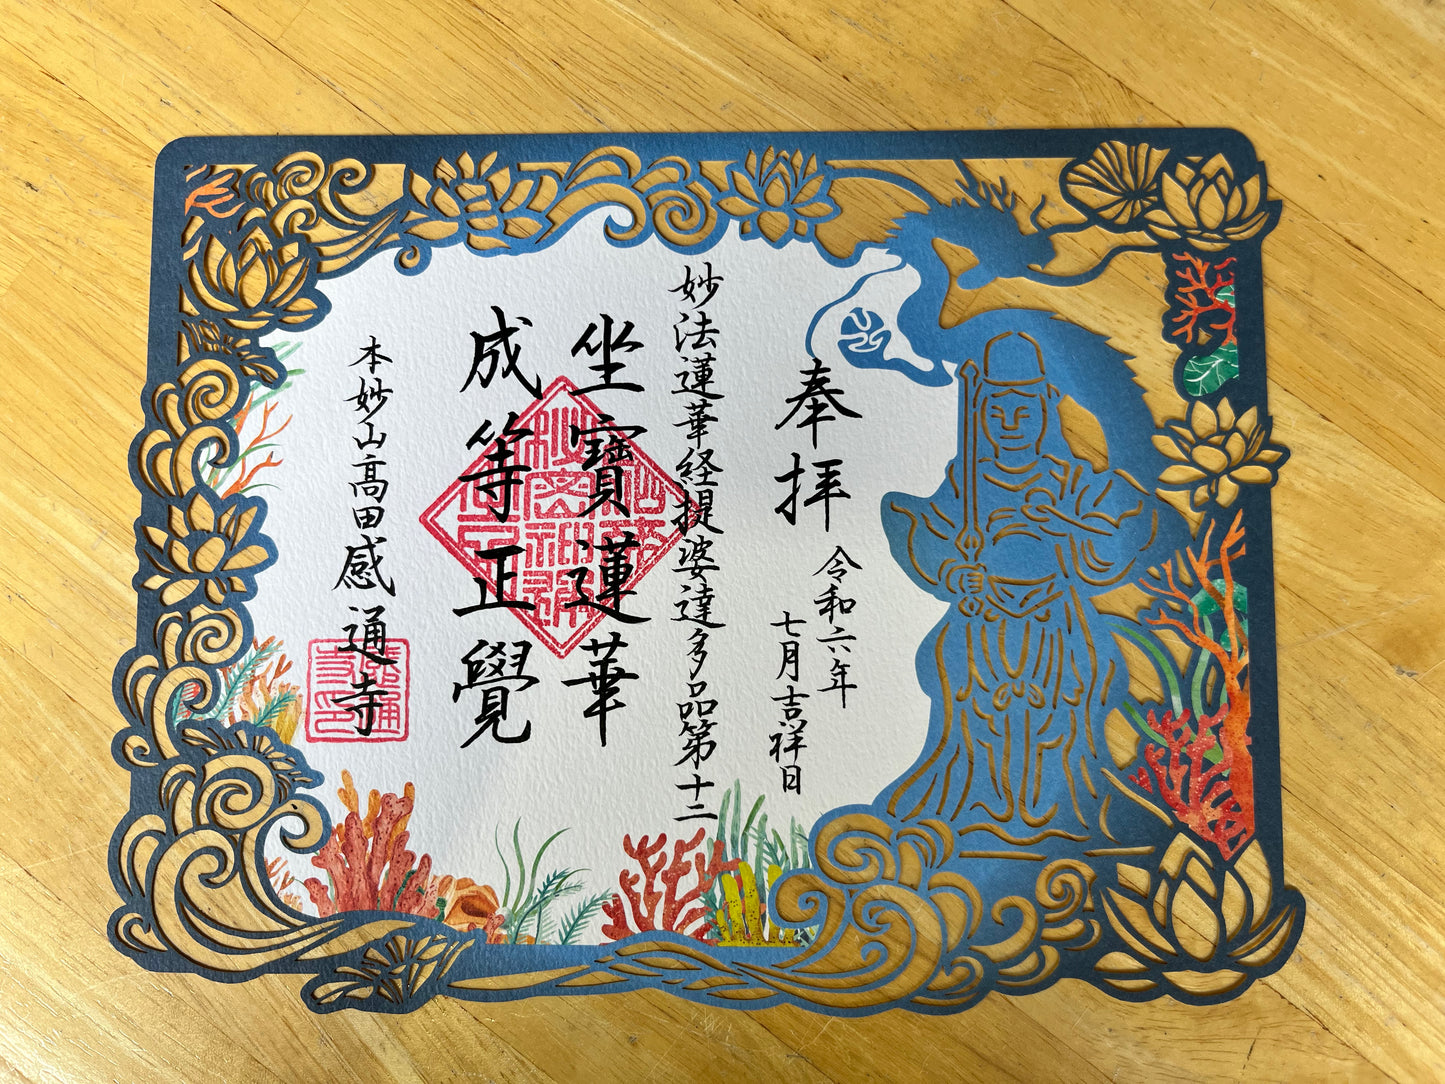 奉拝
令和六年
七月吉祥日
妙法蓮華経提婆達多品第十二
坐寶蓮華
成等正覺
本妙山高田感通寺